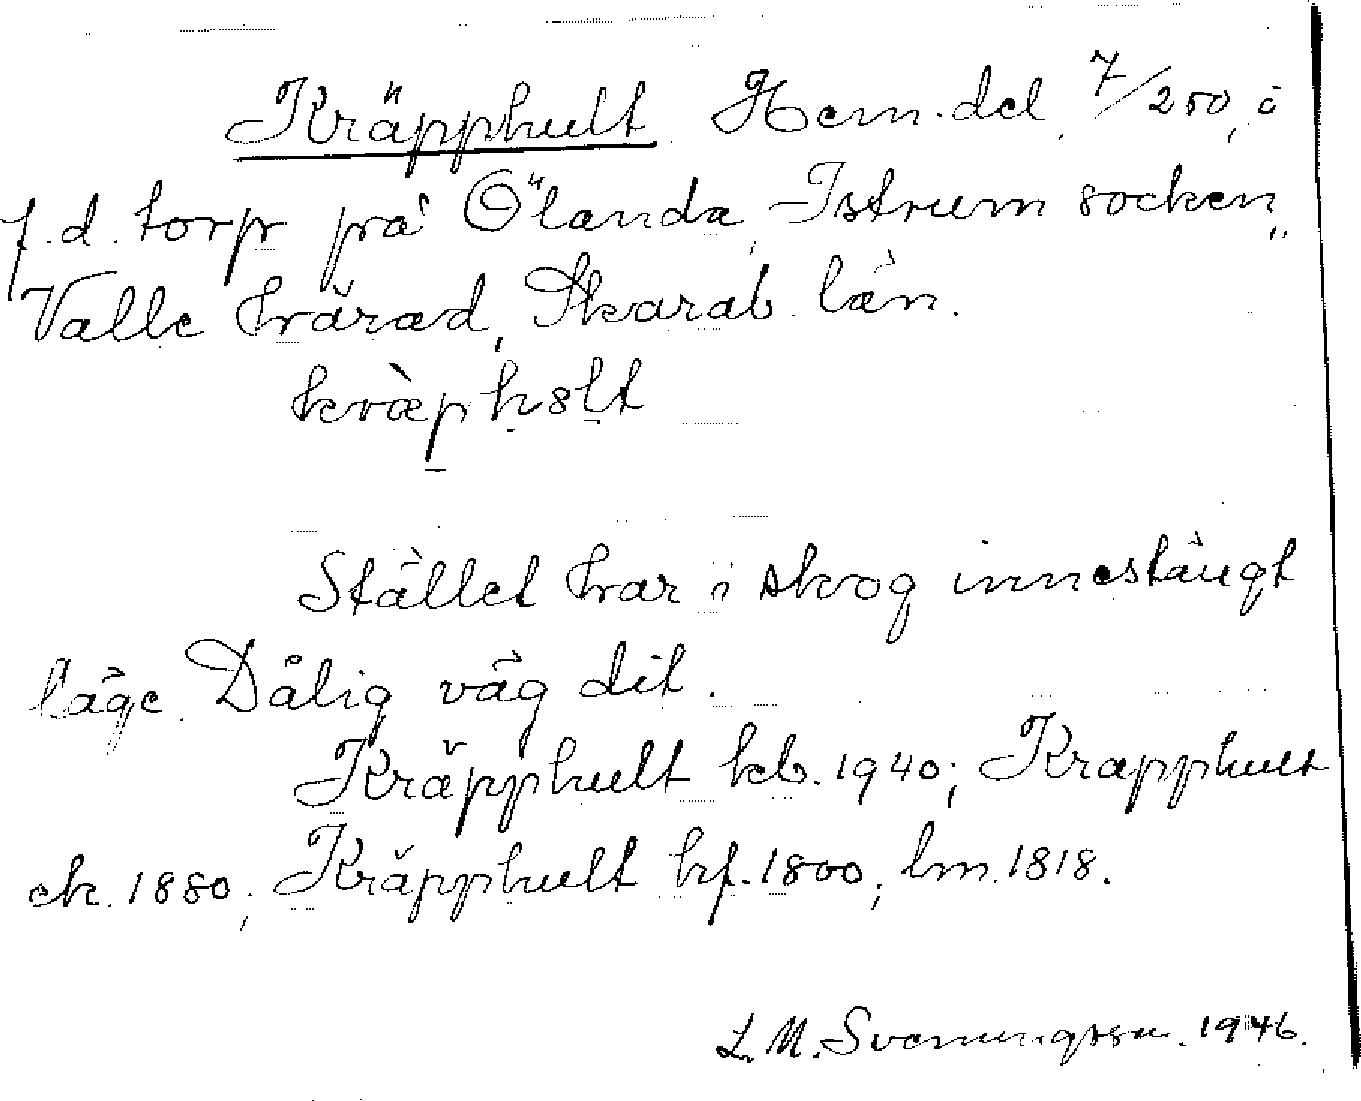 Kräpphult Hem.del 7/250, ö
f.d. torp på Ölanda, Istrum socken,
Valle härad, Skarab. län.
kræ̀phȣlt
Stället har i skog innestängt
läge. Dålig väg dit.
Kräpphult kb. 1940; Krapphult
ek. 1880; Kräpphult hf. 1800, lm. 1818.
L. M. Svenungsson. 1946.